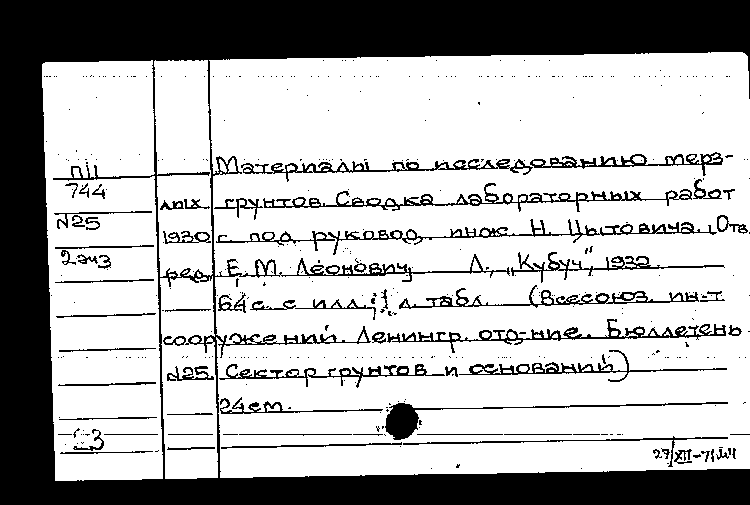 П11
744
N25
2 экз
Материалы по исследованию мерз-
лых грунтов. Сводка лабораторных работ
1930 г. под руковод. инж. Н. Цытовича. Отв.
ред. Е. М. Леонович. Л., „Кубуч", 1932.
64 с. с илл.; 1 л. табл. (Всесоюз. ин-т
сооружений. Ленингр. отд-ние. Бюллетень
N25. Сектор грунтов и оснований)
24 см.
27/XII-71